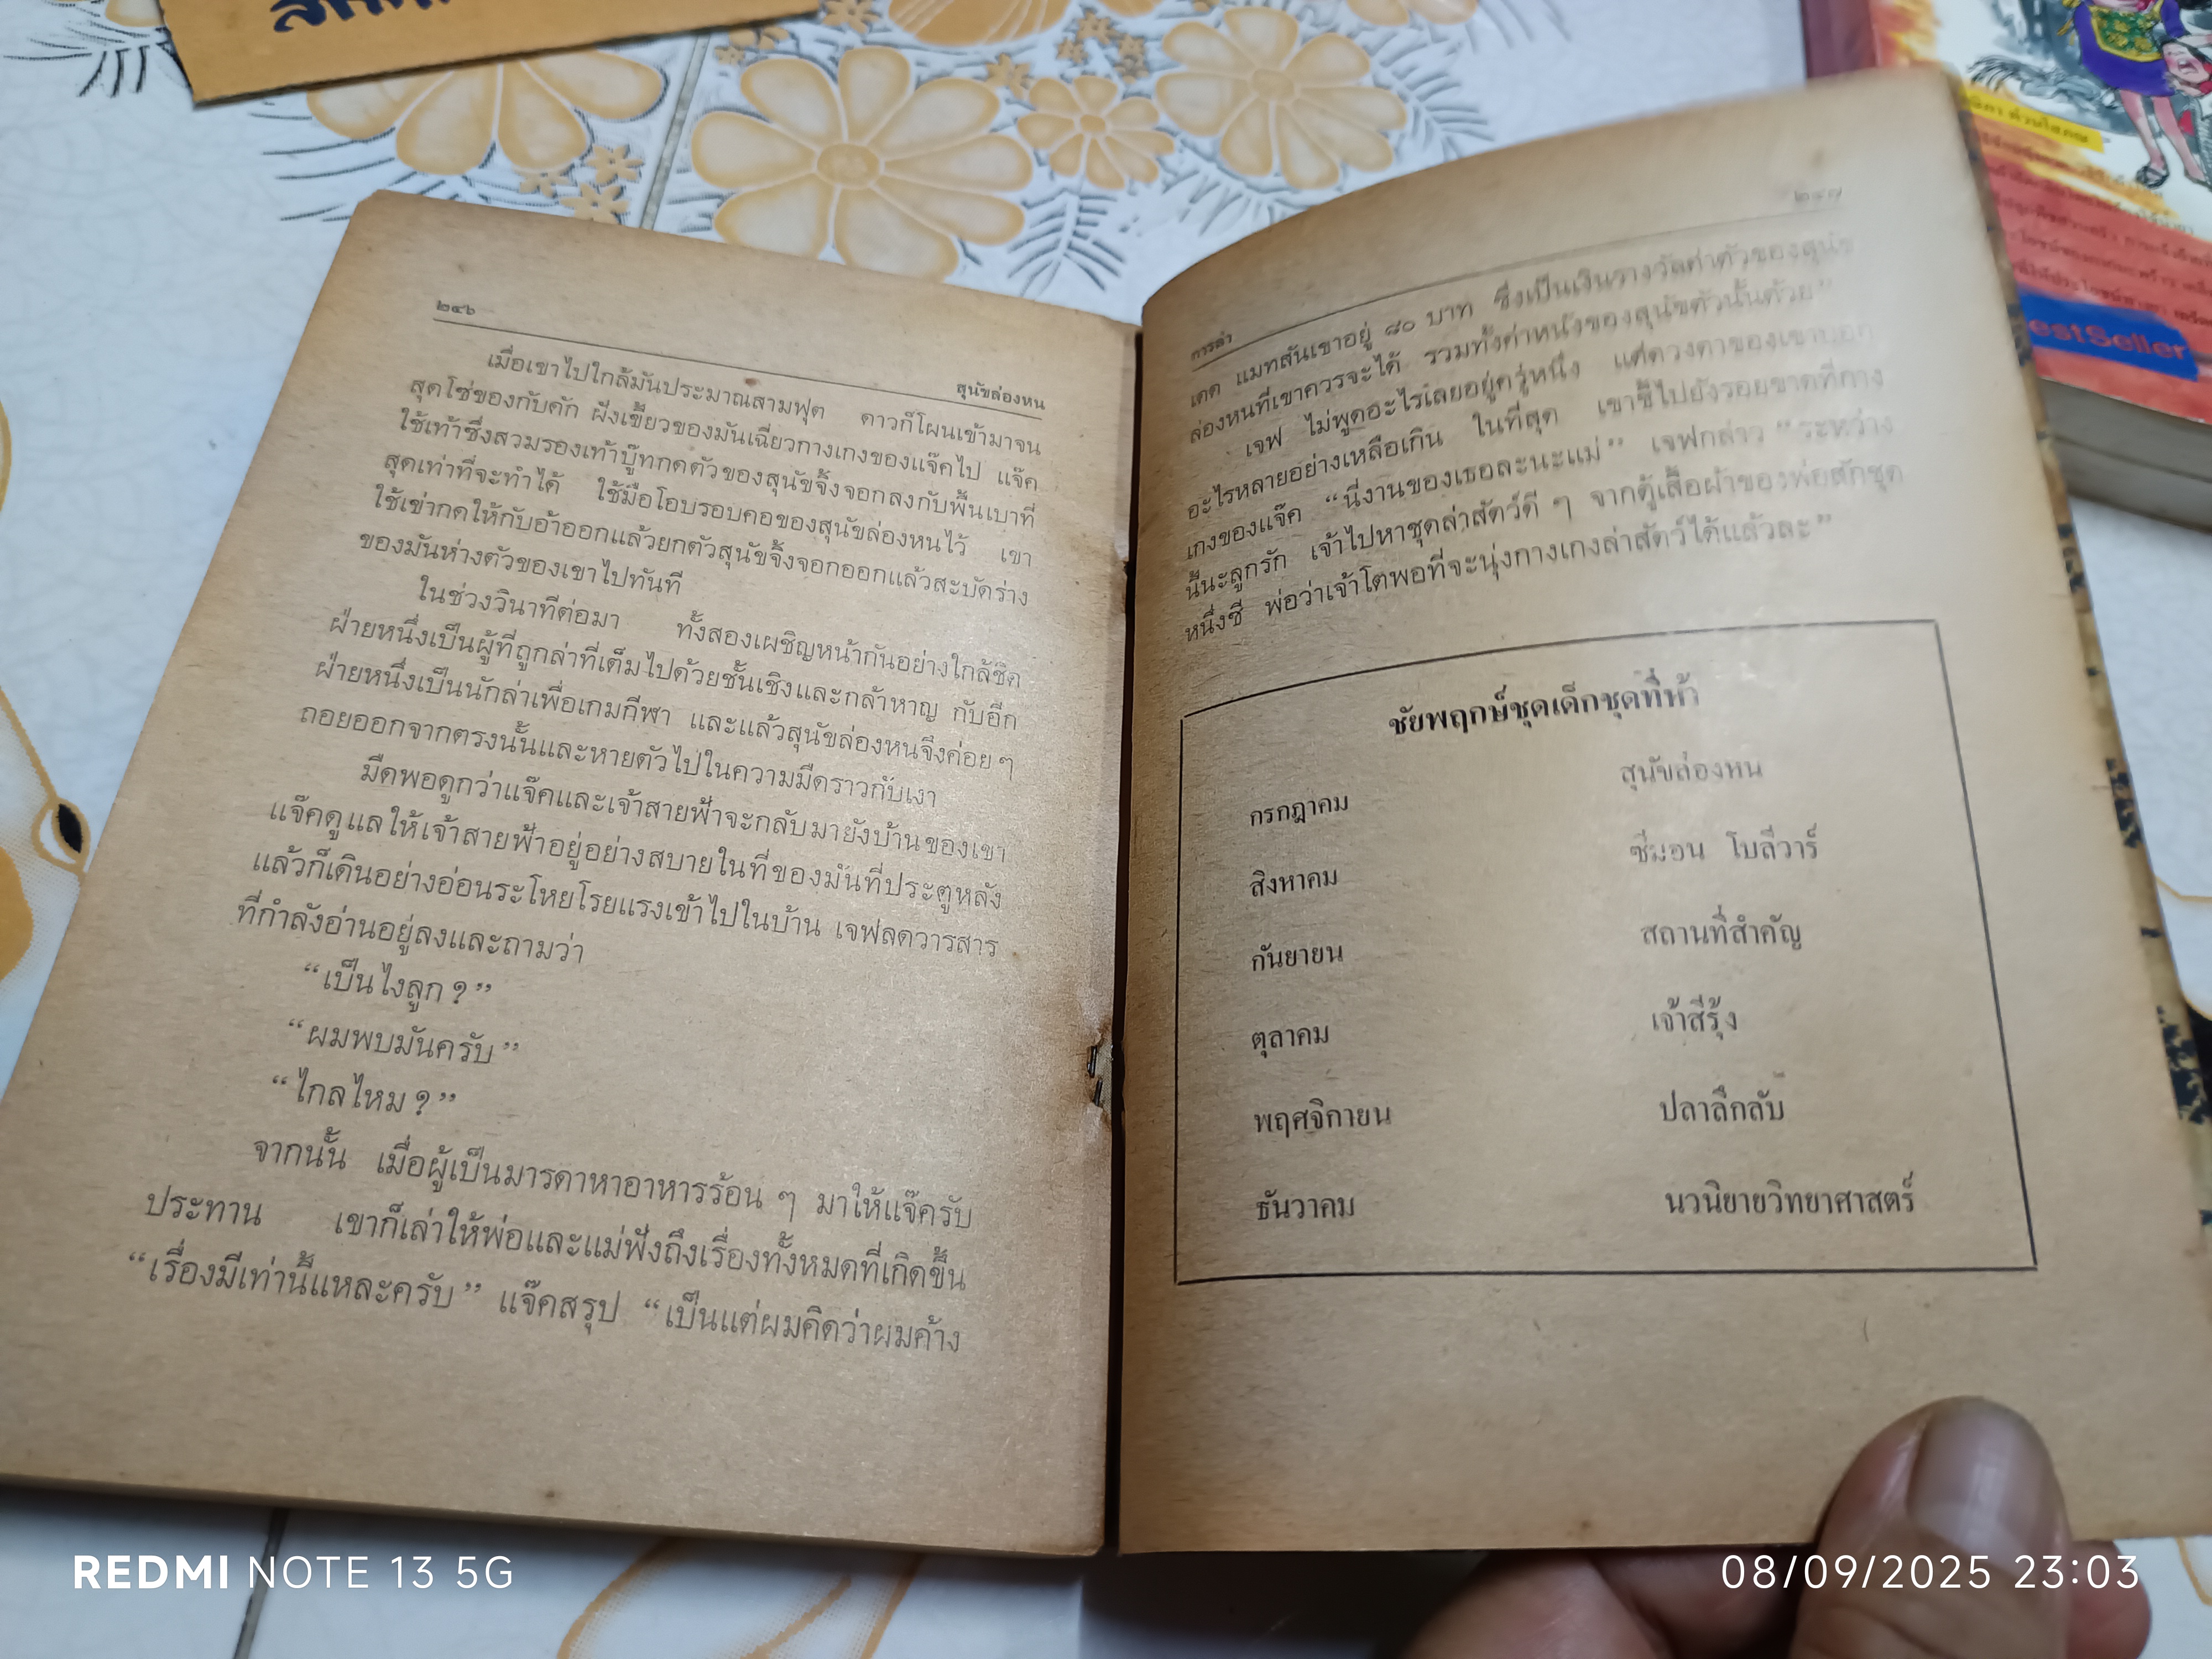 ๒๔๖
สุนัขล่องหน
เมื่อเขาไปใกล้มันประมาณสามฟุต ดาวก็โผนเข้ามาจน
สุดโซ่ของกับดัก ฝังเขี้ยวของมันเฉี่ยวกางเกงของแจ๊คไป แจ๊ค
ใช้เท้าซึ่งสวมรองเท้าบู๊ทกดตัวของสุนัขจิ้งจอกลงกับพื้นเบาที่
สุดเท่าที่จะทำได้ ใช้มือโอบรอบคอของสุนัขล่องหนไว้ เขา
ใช้เข่ากดให้กับอ้าออกแล้วยกตัวสุนัขจิ้งจอกออกแล้วสะบัดร่าง
ของมันห่างตัวของเขาไปทันที
ในช่วงวินาทีต่อมา ทั้งสองเผชิญหน้ากันอย่างใกล้ชิด
ฝ่ายหนึ่งเป็นผู้ที่ถูกล่าที่เต็มไปด้วยชั้นเชิงและกล้าหาญ กับอีก
ฝ่ายหนึ่งเป็นนักล่าเพื่อเกมกีฬา และแล้วสุนัขล่องหนจึงค่อย ๆ
ถอยออกจากตรงนั้นและหายตัวไปในความมืดราวกับเงา
มืดพอดูกว่าแจ๊คและเจ้าสายฟ้าจะกลับมายังบ้านของเขา
แจ๊คดูแลให้เจ้าสายฟ้าอยู่อย่างสบายในที่ของมันที่ประตูหลัง
แล้วก็เดินอย่างอ่อนระโหยโรยแรงเข้าไปในบ้าน เจฟลดวารสาร
ที่กำลังอ่านอยู่ลงและถามว่า
“เป็นไงลูก ?”
“ผมพบมันครับ”
“ไกลไหม ?”
จากนั้น เมื่อผู้เป็นมารดาหาอาหารร้อน ๆ มาให้แจ๊ครับ
ประทาน เขาก็เล่าให้พ่อและแม่ฟังถึงเรื่องทั้งหมดที่เกิดขึ้น
“เรื่องมีเท่านี้แหละครับ” แจ๊คสรุป “เป็นแต่ผมคิดว่าผมค้าง
๒๔๗
การล่า
เดด แมทสันเขาอยู่ ๘๐ บาท ซึ่งเป็นเงินรางวัลค่าตัวของสุนัข
ล่องหนที่เขาควรจะได้ รวมทั้งค่าหนังของสุนัขตัวนั้นด้วย”
เจฟ ไม่พูดอะไรเลยอยู่ครู่หนึ่ง แต่ดวงตาของเขาบอก
อะไรหลายอย่างเหลือเกิน ในที่สุด เขาชี้ไปยังรอยขาดที่กาง
เกงของแจ๊ค “นี่งานของเธอละนะแม่” เจฟกล่าว “ระหว่าง
นี้นะลูกรัก เจ้าไปหาชุดล่าสัตว์ดี ๆ จากตู้เสื้อผ้าของพ่อสักชุด
หนึ่งซี พ่อว่าเจ้าโตพอที่จะนุ่งกางเกงล่าสัตว์ได้แล้วละ”
ชัยพฤกษ์ชุดเด็กชุดที่ห้า
กรกฎาคม สุนัขล่องหน
สิงหาคม ซีมอน โบลีวาร์
กันยายน สถานที่สำคัญ
ตุลาคม เจ้าสีรุ้ง
พฤศจิกายน ปลาลึกลับ
ธันวาคม นวนิยายวิทยาศาสตร์
estSeller
REDMI NOTE 13 5G
08/09/2025 23:03